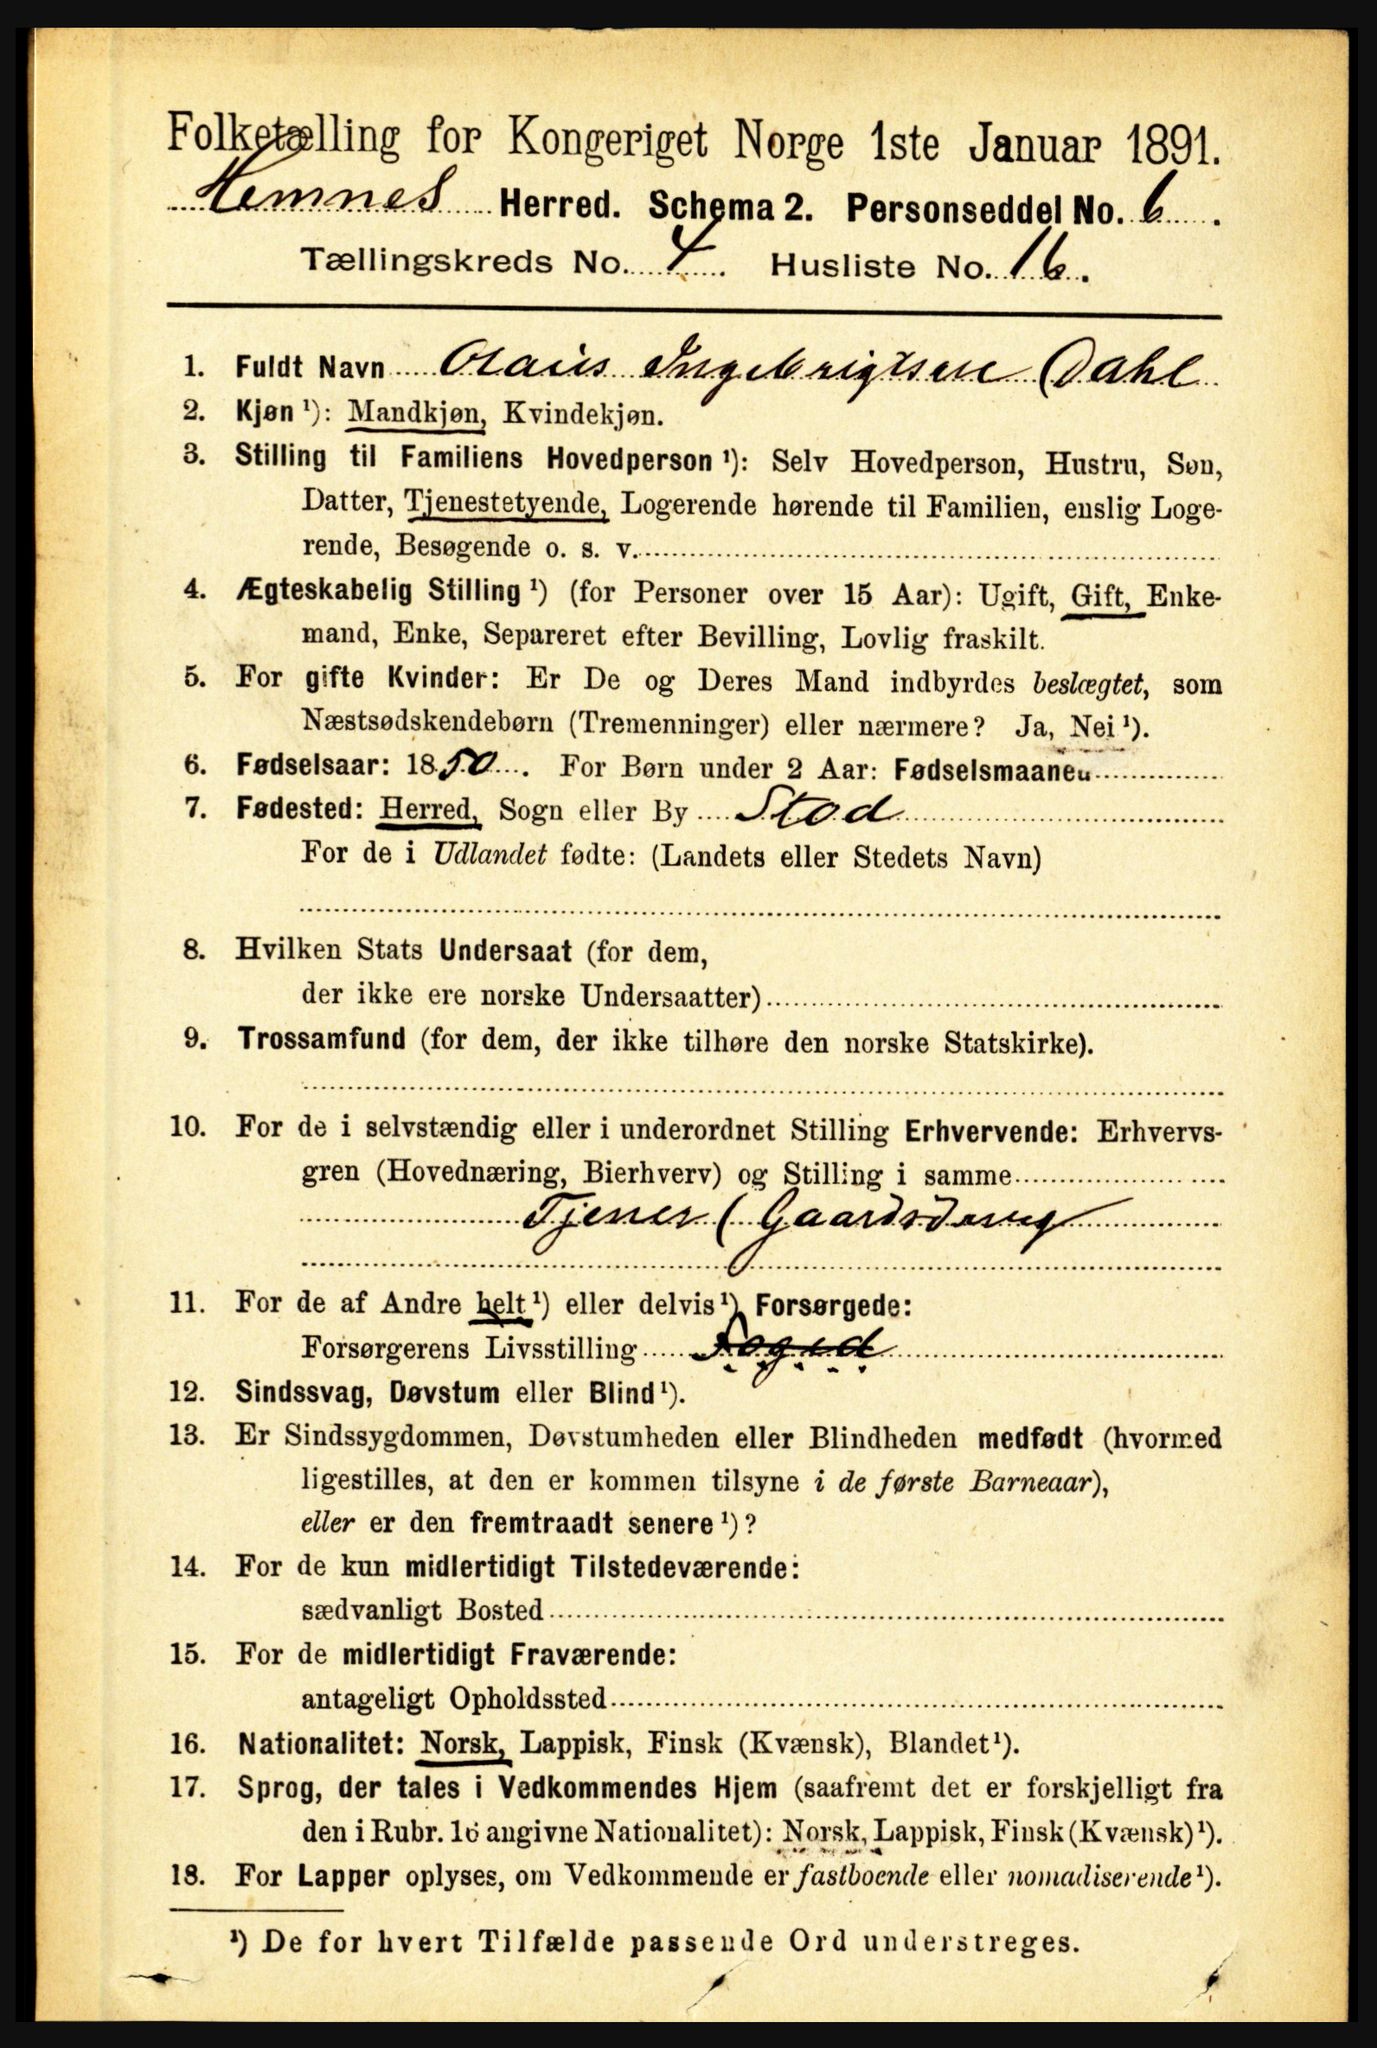 Folketælling for Kongeriget Norge 1ste Januar 1891.
Hemnes Herred. Schema 2. Personseddel No. 6.
Tællingskreds No. 4. Husliste No. 16.
1. Fuldt Navn Olaus Ingebrigtsen Dahl
2. Kjøn ¹): Mandkjøn, Kvindekjøn.
3. Stilling til Familiens Hovedperson ¹): Selv Hovedperson, Hustru, Søn,
Datter, Tjenestetyende, Logerende hørende til Familien, enslig Loge-
rende, Besøgende o. s. v.
4. Ægteskabelig Stilling ¹) (for Personer over 15 Aar): Ugift, Gift, Enke-
mand, Enke, Separeret efter Bevilling, Lovlig fraskilt.
5. For gifte Kvinder: Er De og Deres Mand indbyrdes beslægtet, som
Næstsødskendebørn (Tremenninger) eller nærmere? Ja, Nei ¹).
6. Fødselsaar: 1850. For Børn under 2 Aar: Fødselsmaaned
7. Fødested: Herred, Sogn eller By Stod
For de i Udlandet fødte: (Landets eller Stedets Navn)
8. Hvilken Stats Undersaat (for dem,
der ikke ere norske Undersaatter)
9. Trossamfund (for dem, der ikke tilhøre den norske Statskirke).
10. For de i selvstændig eller i underordnet Stilling Erhvervende: Erhvervs-
gren (Hovednæring, Bierhverv) og Stilling i samme
Tjener (Gaardsdreng
11. For de af Andre helt ¹) eller delvis ¹) Forsørgede:
Forsørgerens Livsstilling Foged
12. Sindssvag, Døvstum eller Blind ¹).
13. Er Sindssygdommen, Døvstumheden eller Blindheden medfødt (hvormed
ligestilles, at den er kommen tilsyne i de første Barneaar),
eller er den fremtraadt senere ¹)?
14. For de kun midlertidigt Tilstedeværende:
sædvanligt Bosted
15. For de midlertidigt Fraværende:
antageligt Opholdssted
16. Nationalitet: Norsk, Lappisk, Finsk (Kvænsk), Blandet ¹).
17. Sprog, der tales i Vedkommendes Hjem (saafremt det er forskjelligt fra
den i Rubr. 16 angivne Nationalitet): Norsk, Lappisk, Finsk (Kvænsk) ¹).
18. For Lapper oplyses, om Vedkommende er fastboende eller nomadiserende ¹).
¹) De for hvert Tilfælde passende Ord understreges.